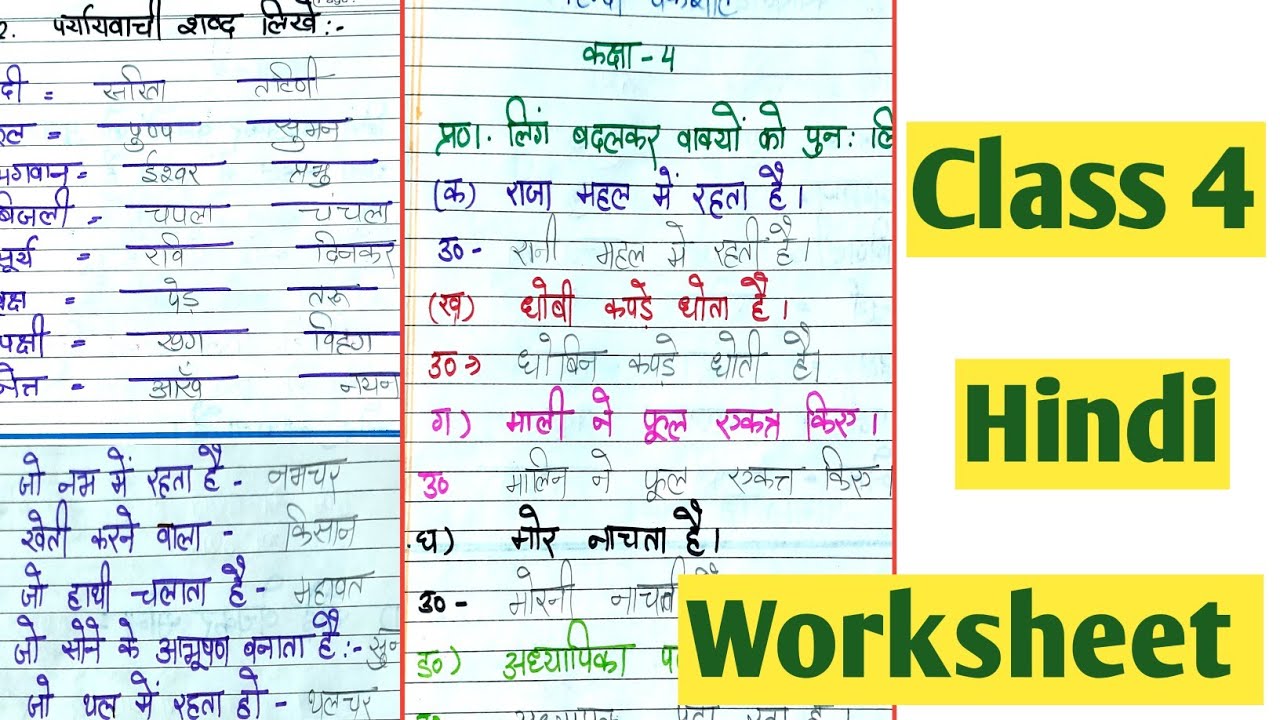 2. पर्यायवाची शब्द लिखे :-
दी = सरिता तटिणी
ल = पुष्प सुमन
गवान = ईश्वर प्रभु
बिजली = चपला चंचला
सूर्य = रवि दिनकर
क्ष = पेड़ तरू
पक्षी = खग विहग
नेत्त = आँख नयन
जो नभ में रहता है - नभचर
खेती करने वाला - किसान
जो हाथी चलाता है - महावत
जो सोने के आभूषण बनाता है :- सुन
जो थल में रहता हो - थलचर
कक्षा - 4
प्र०1. लिंग बदलकर वाक्यों को पुनः लि
(क) राजा महल में रहता है।
उ० - रानी महल मे रहती है।
(ख) धोबी कपड़े धोता है।
उ० → धोबिन कपड़े धोती है।
ग) माली ने फूल एकत्र किए।
उ० मालिन ने फूल एकत्त किए।
घ) मोर नाचता है।
उ० - मोरनी नाचती है
ड०) अध्यापिका
Class 4
Hindi
Worksheet